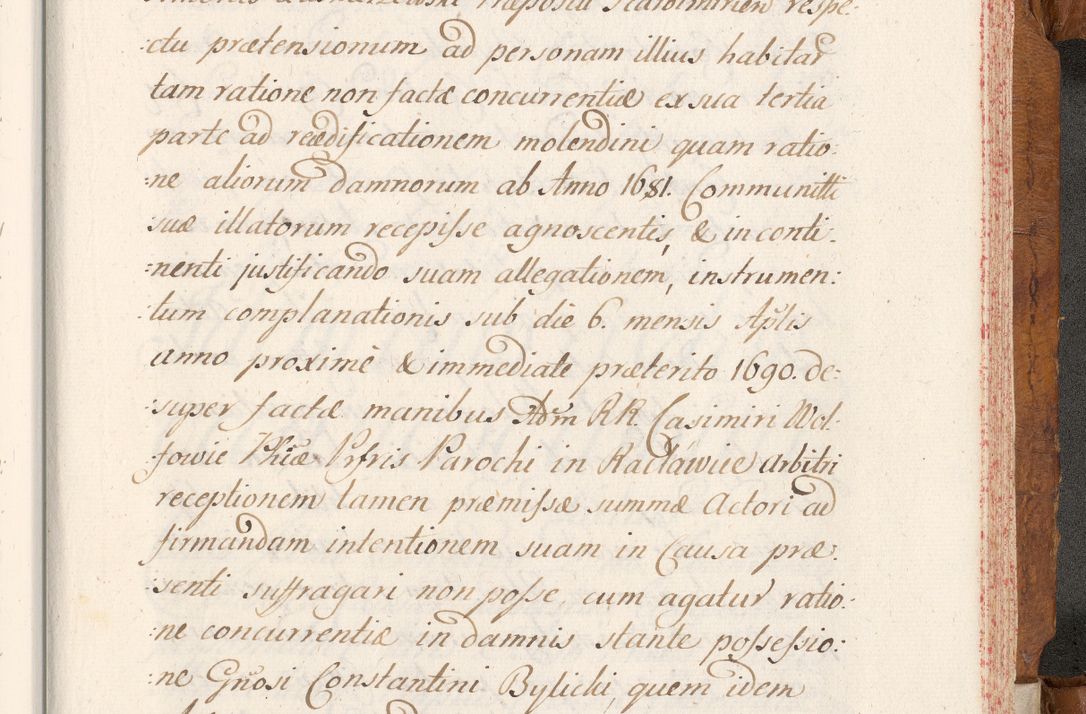 Præpositi Scarbimirien respe-
:ctu prætensionum ad personam illius habitar
tam ratione non factæ concurrentiæ ex sua tertia
parte ad reædificationem molendini quam ratio:
:ne aliorum damnorum ab Anno 1681. Communitti
suæ illatorum recepisse agnoscentis, & in conti-
:nenti justificando suam allegationem, instrumen:
:tum complanationis sub die 6. mensis Aplis
anno proximè & immediate præterito 1690. de:
:super factæ manibus Adm RR. Casimiri Wol-
fowic Phiæ Prfris Parochi in Racławice Arbitri
receptionem tamen præmissæ summæ Actori ad
firmandam intentionem suam in Causa præ-
:senti suffragari non posse, cum agatur ratio:
:ne concurrentiæ in damnis stante possessio:
:ne Gnosi Constantini Bylicki, quem idem